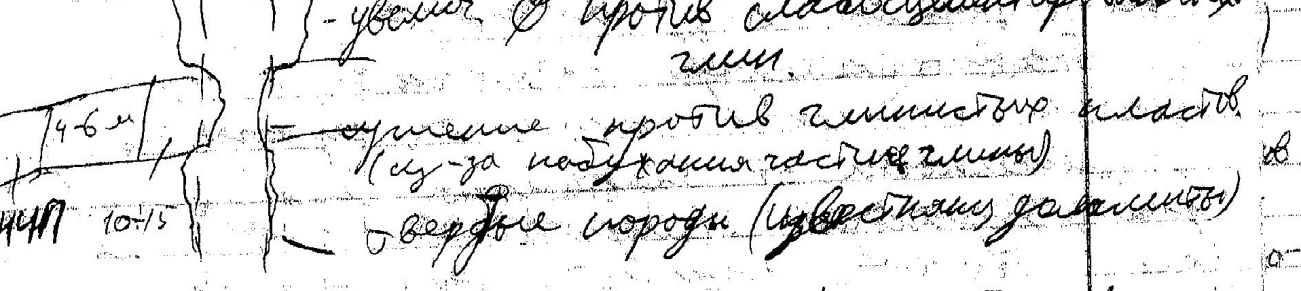 - увелич ∅ против слабосцементированных
глин.
4-6 м
- сужение против глинистых пластов.
(из-за набухания частиц глины)
ов
ЧЧП 10-15
- твердые породы (известняки, доломиты)